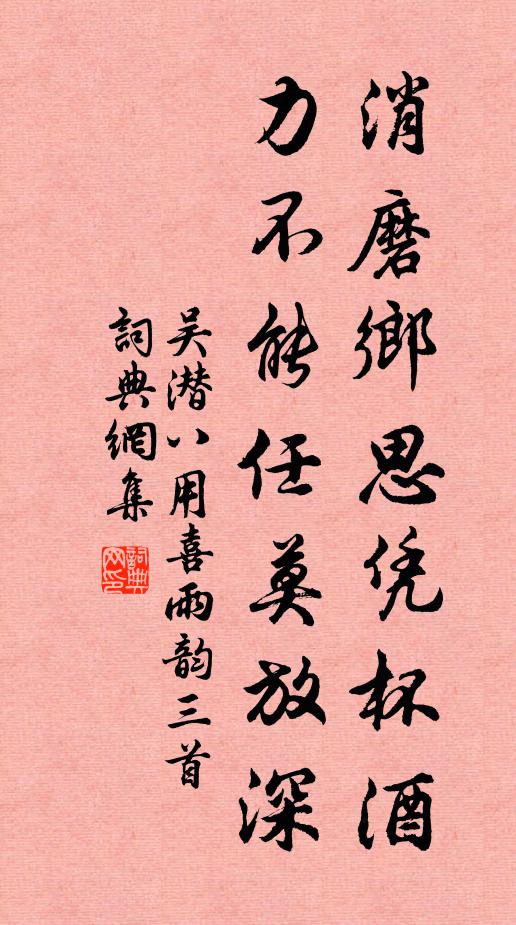 消磨鄉思凭杯酒
力不能任莫放深
吴潜八用喜雨韵三首
詞典網集
詞典網印